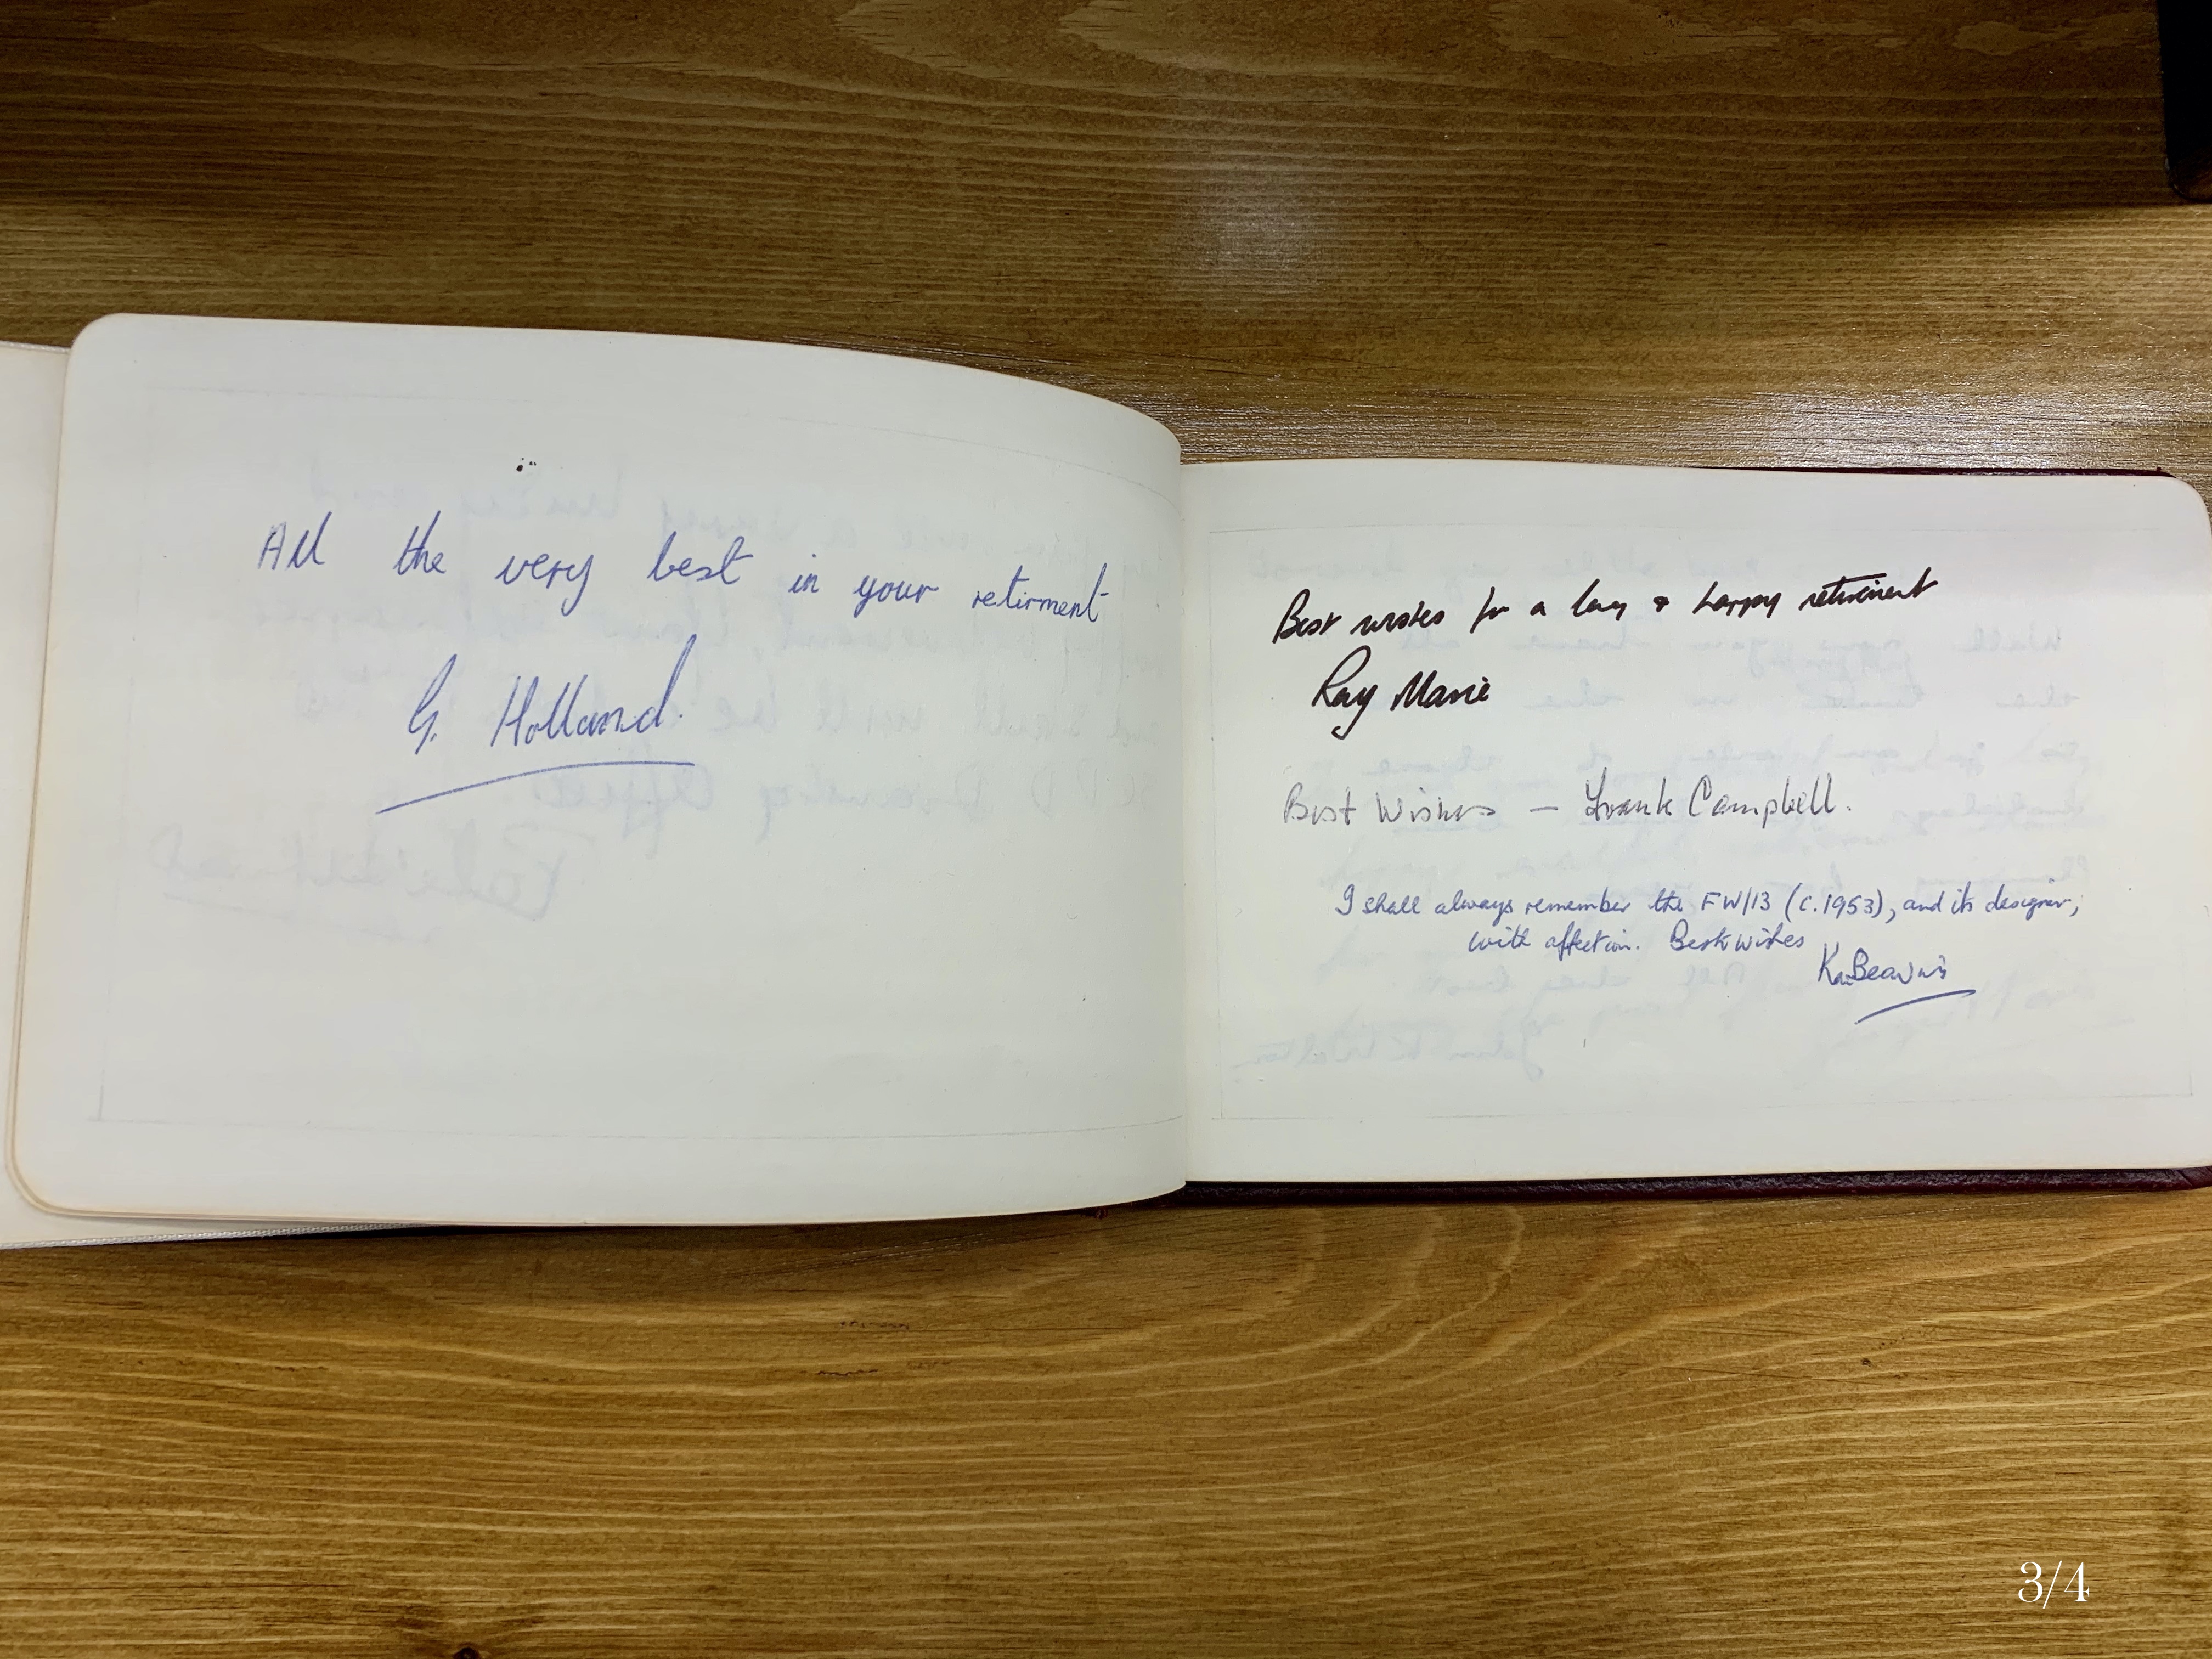 All the very best in your retirment
G. Holland.
Best wishes for a long & happy retirement
Ray
Best Wishes – Frank Campbell.
I shall always remember the FW/13 (c.1953), and its designer,
with affection. Best wishes
3/4